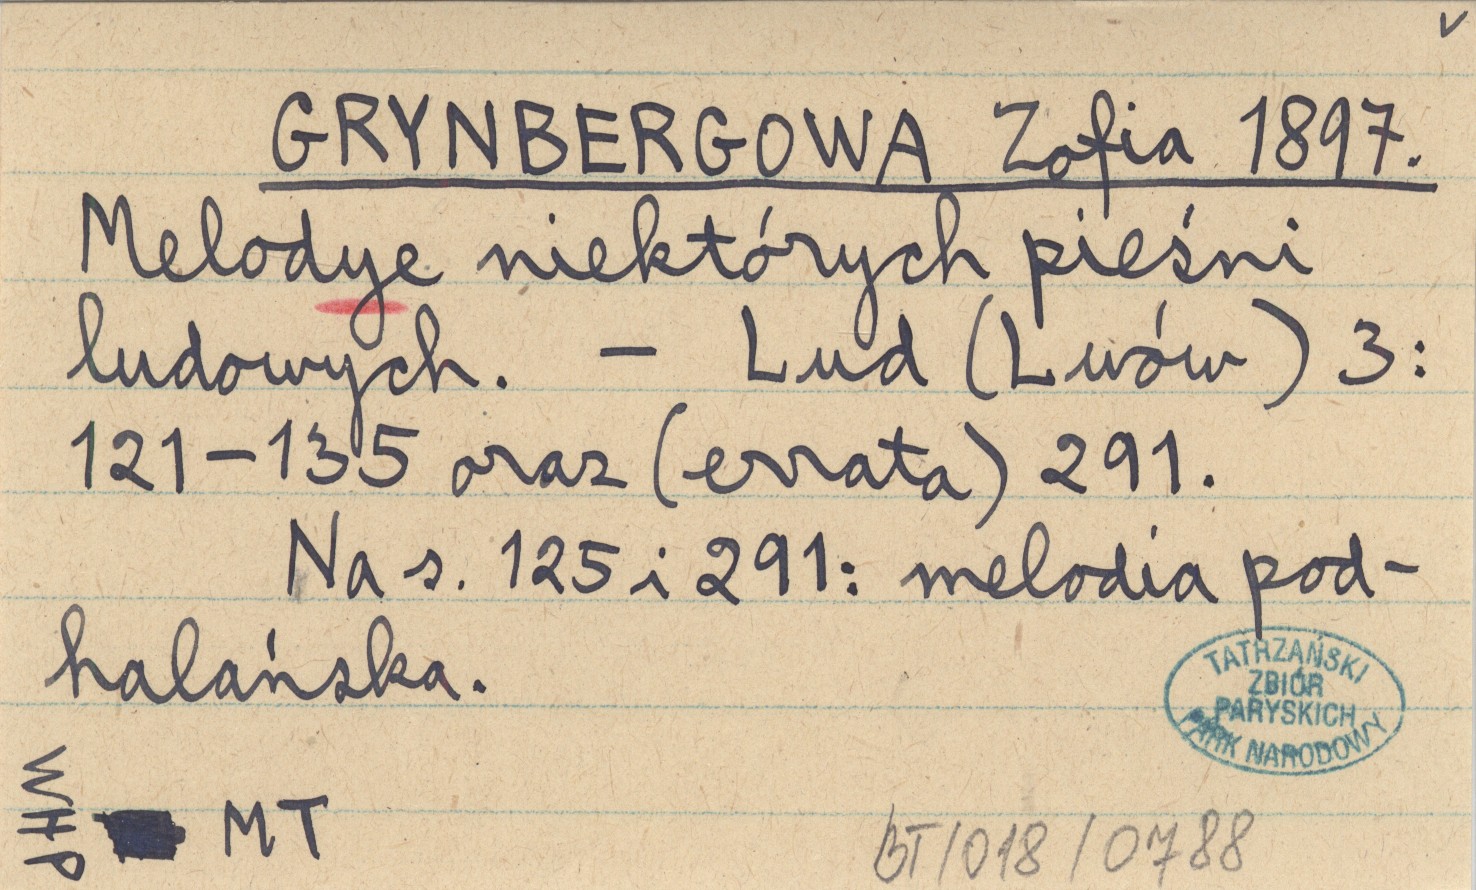 v
GRYNBERGOWA Zofia 1897.
Melodye niektórych pieśni
ludowych. – Lud (Lwów) 3:
121–135 oraz (errata) 291.
Na s. 125 i 291: melodia pod-
halańska.
TATRZAŃSKI
ZBIÓR
PARYSKICH
PARK NARODOWY
WHP
MT
BT/018/0788